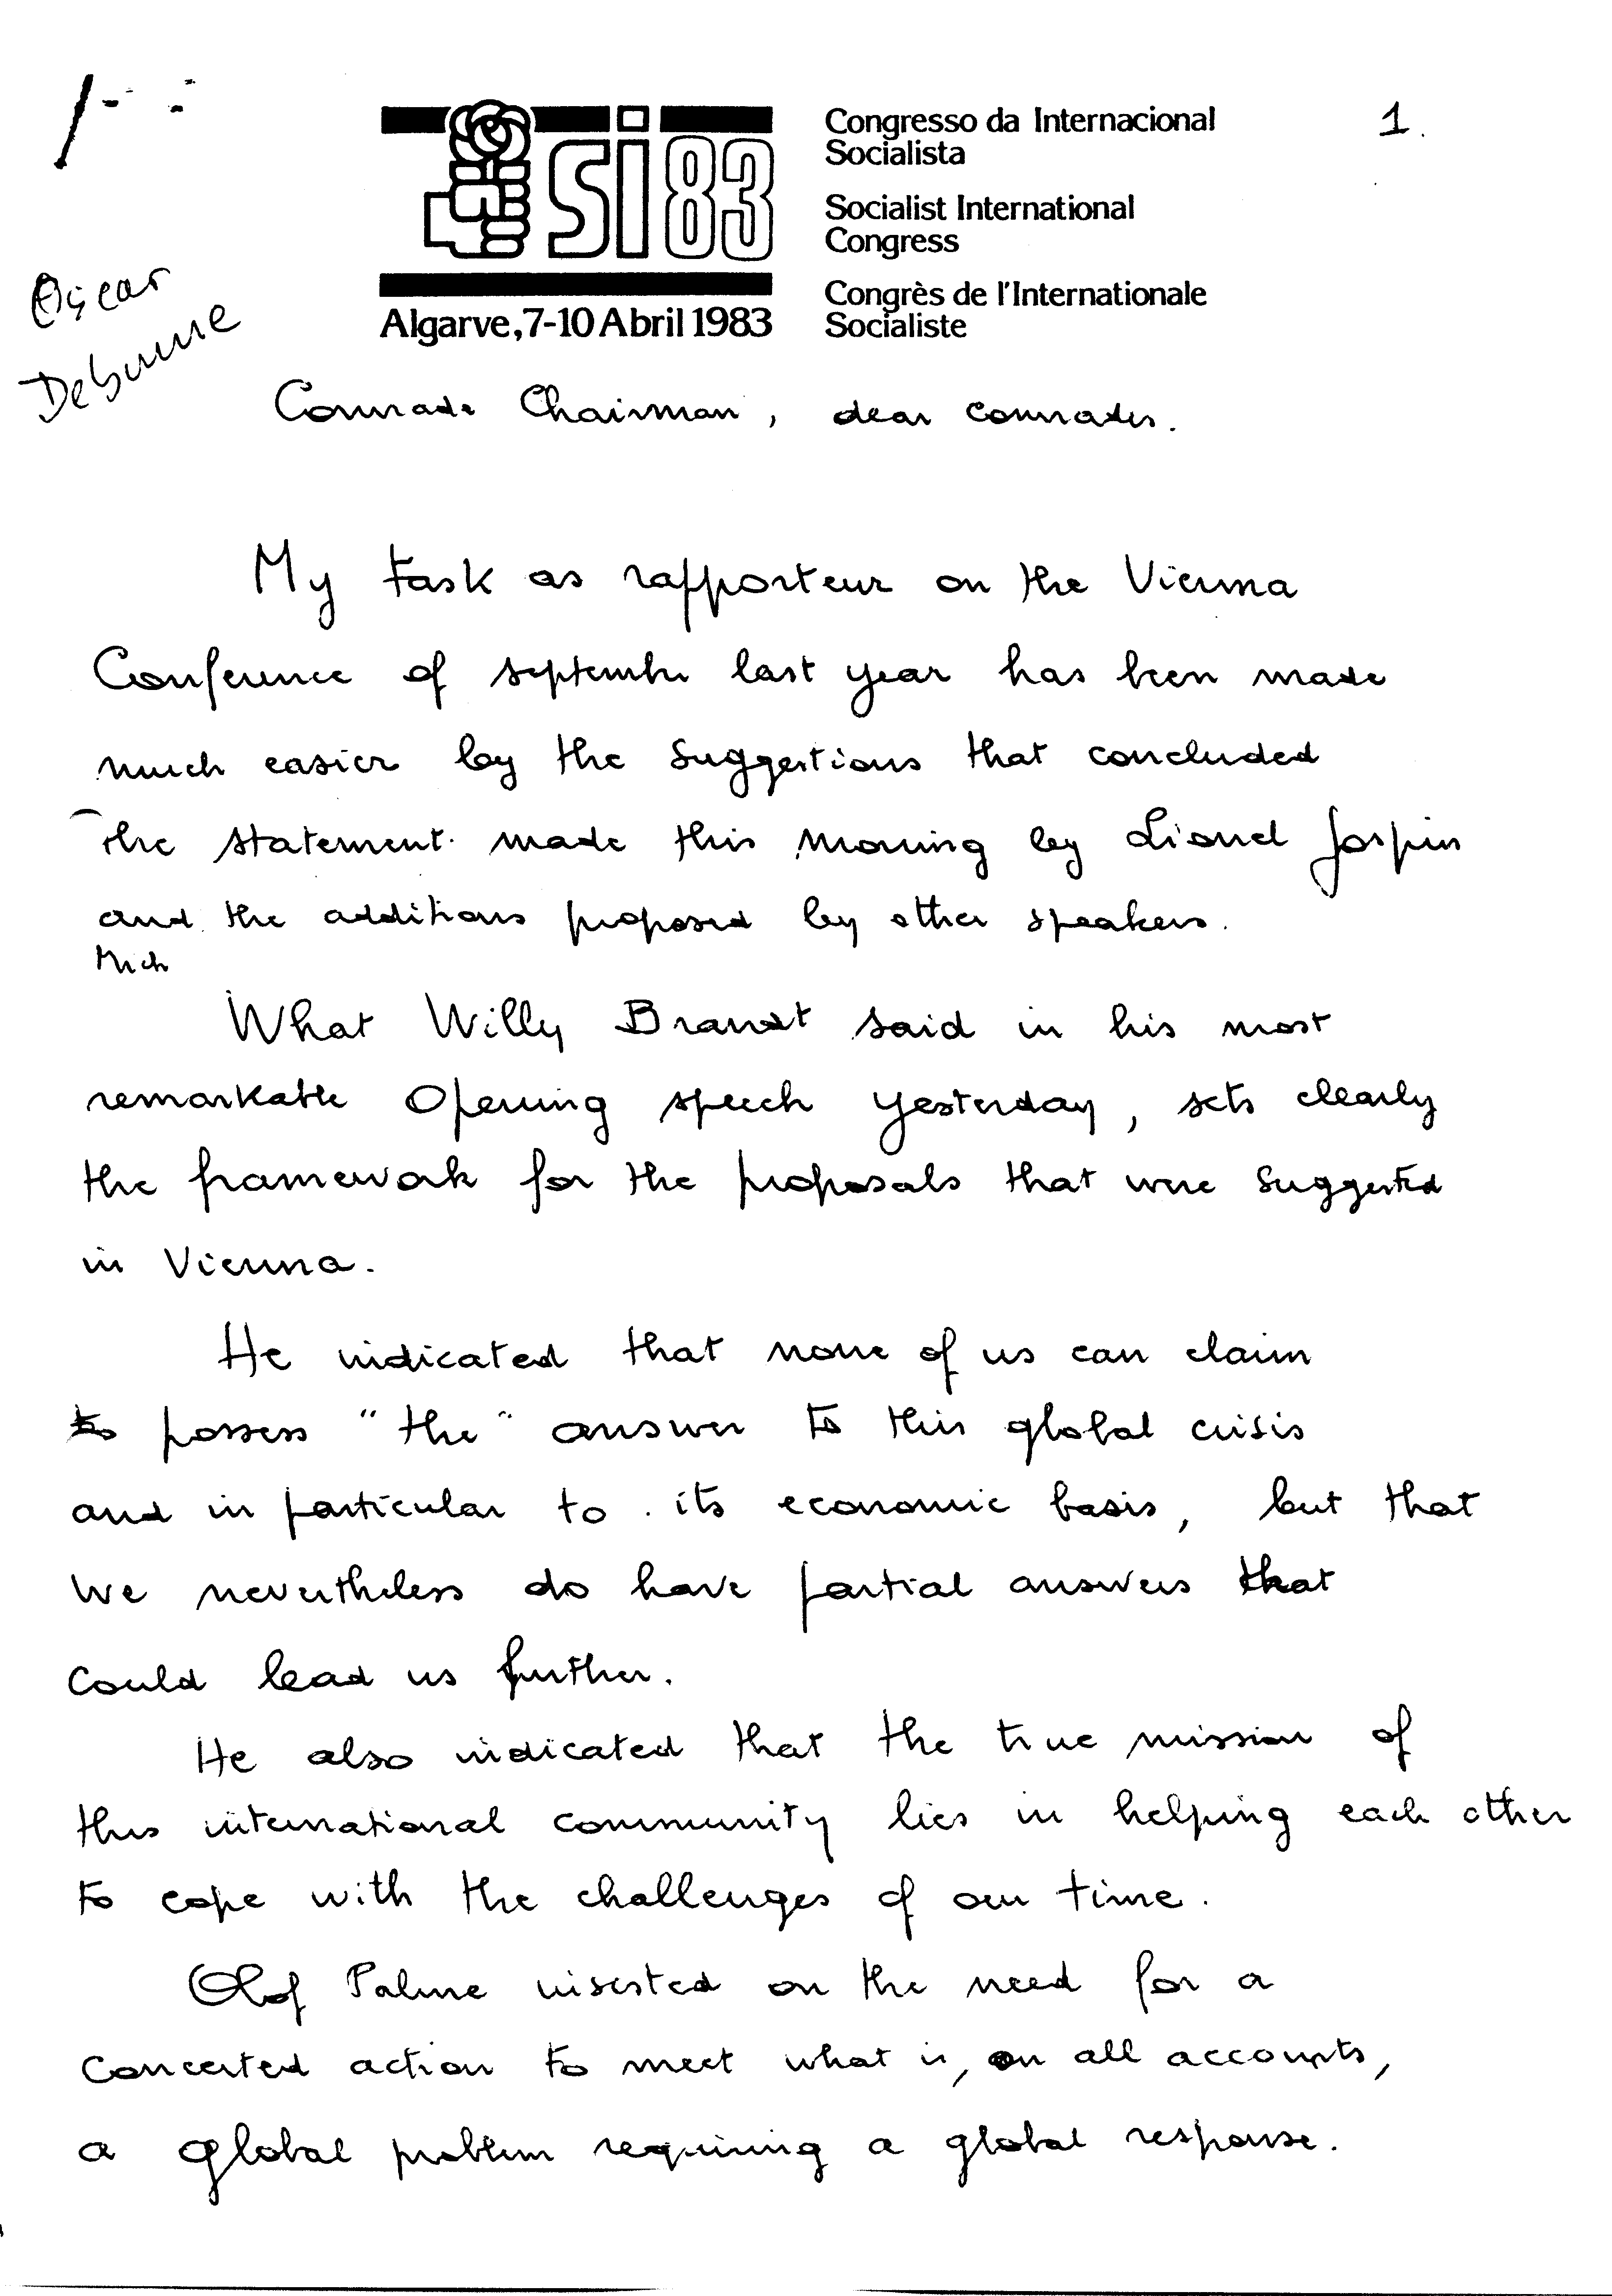 Congresso da Internacional
Socialista
1.
Socialist International
Congress
Congrès de l'Internationale
Socialiste
Si 83
Algarve, 7-10 Abril 1983
Oscar
Debunne
Comrade Chairman, dear comrades.
My task as rapporteur on the Vienna
Conference of september last year has been made
much easier by the suggestions that concluded
the statement made this morning by Lionel Jospin
and the additions proposed by other speakers.
What Willy Brandt said in his most
remarkable opening speech yesterday, sets clearly
the framework for the proposals that were suggested
in Vienna.
He indicated that none of us can claim
to possess "the" answer to this global crisis
and in particular to its economic basis, but that
we nevertheless do have partial answers that
could lead us further.
He also indicated that the true mission of
this international community lies in helping each other
to cope with the challenges of our time.
Olof Palme insisted on the need for a
concerted action to meet what is, on all accounts,
a global problem requiring a global response.